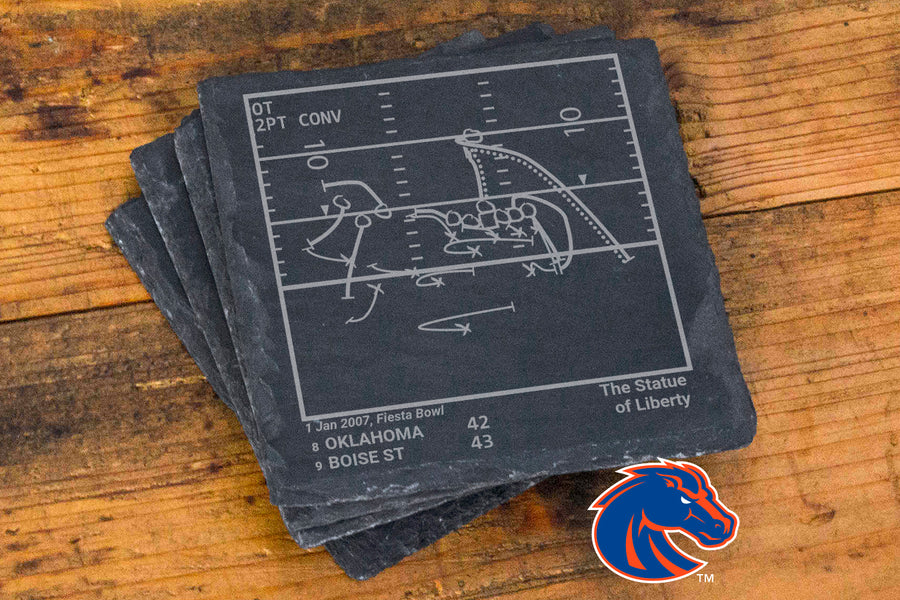 OT
2PT CONV
10
10
1 Jan 2007, Fiesta Bowl
8 OKLAHOMA 42
9 BOISE ST 43
The Statue
of Liberty
TM